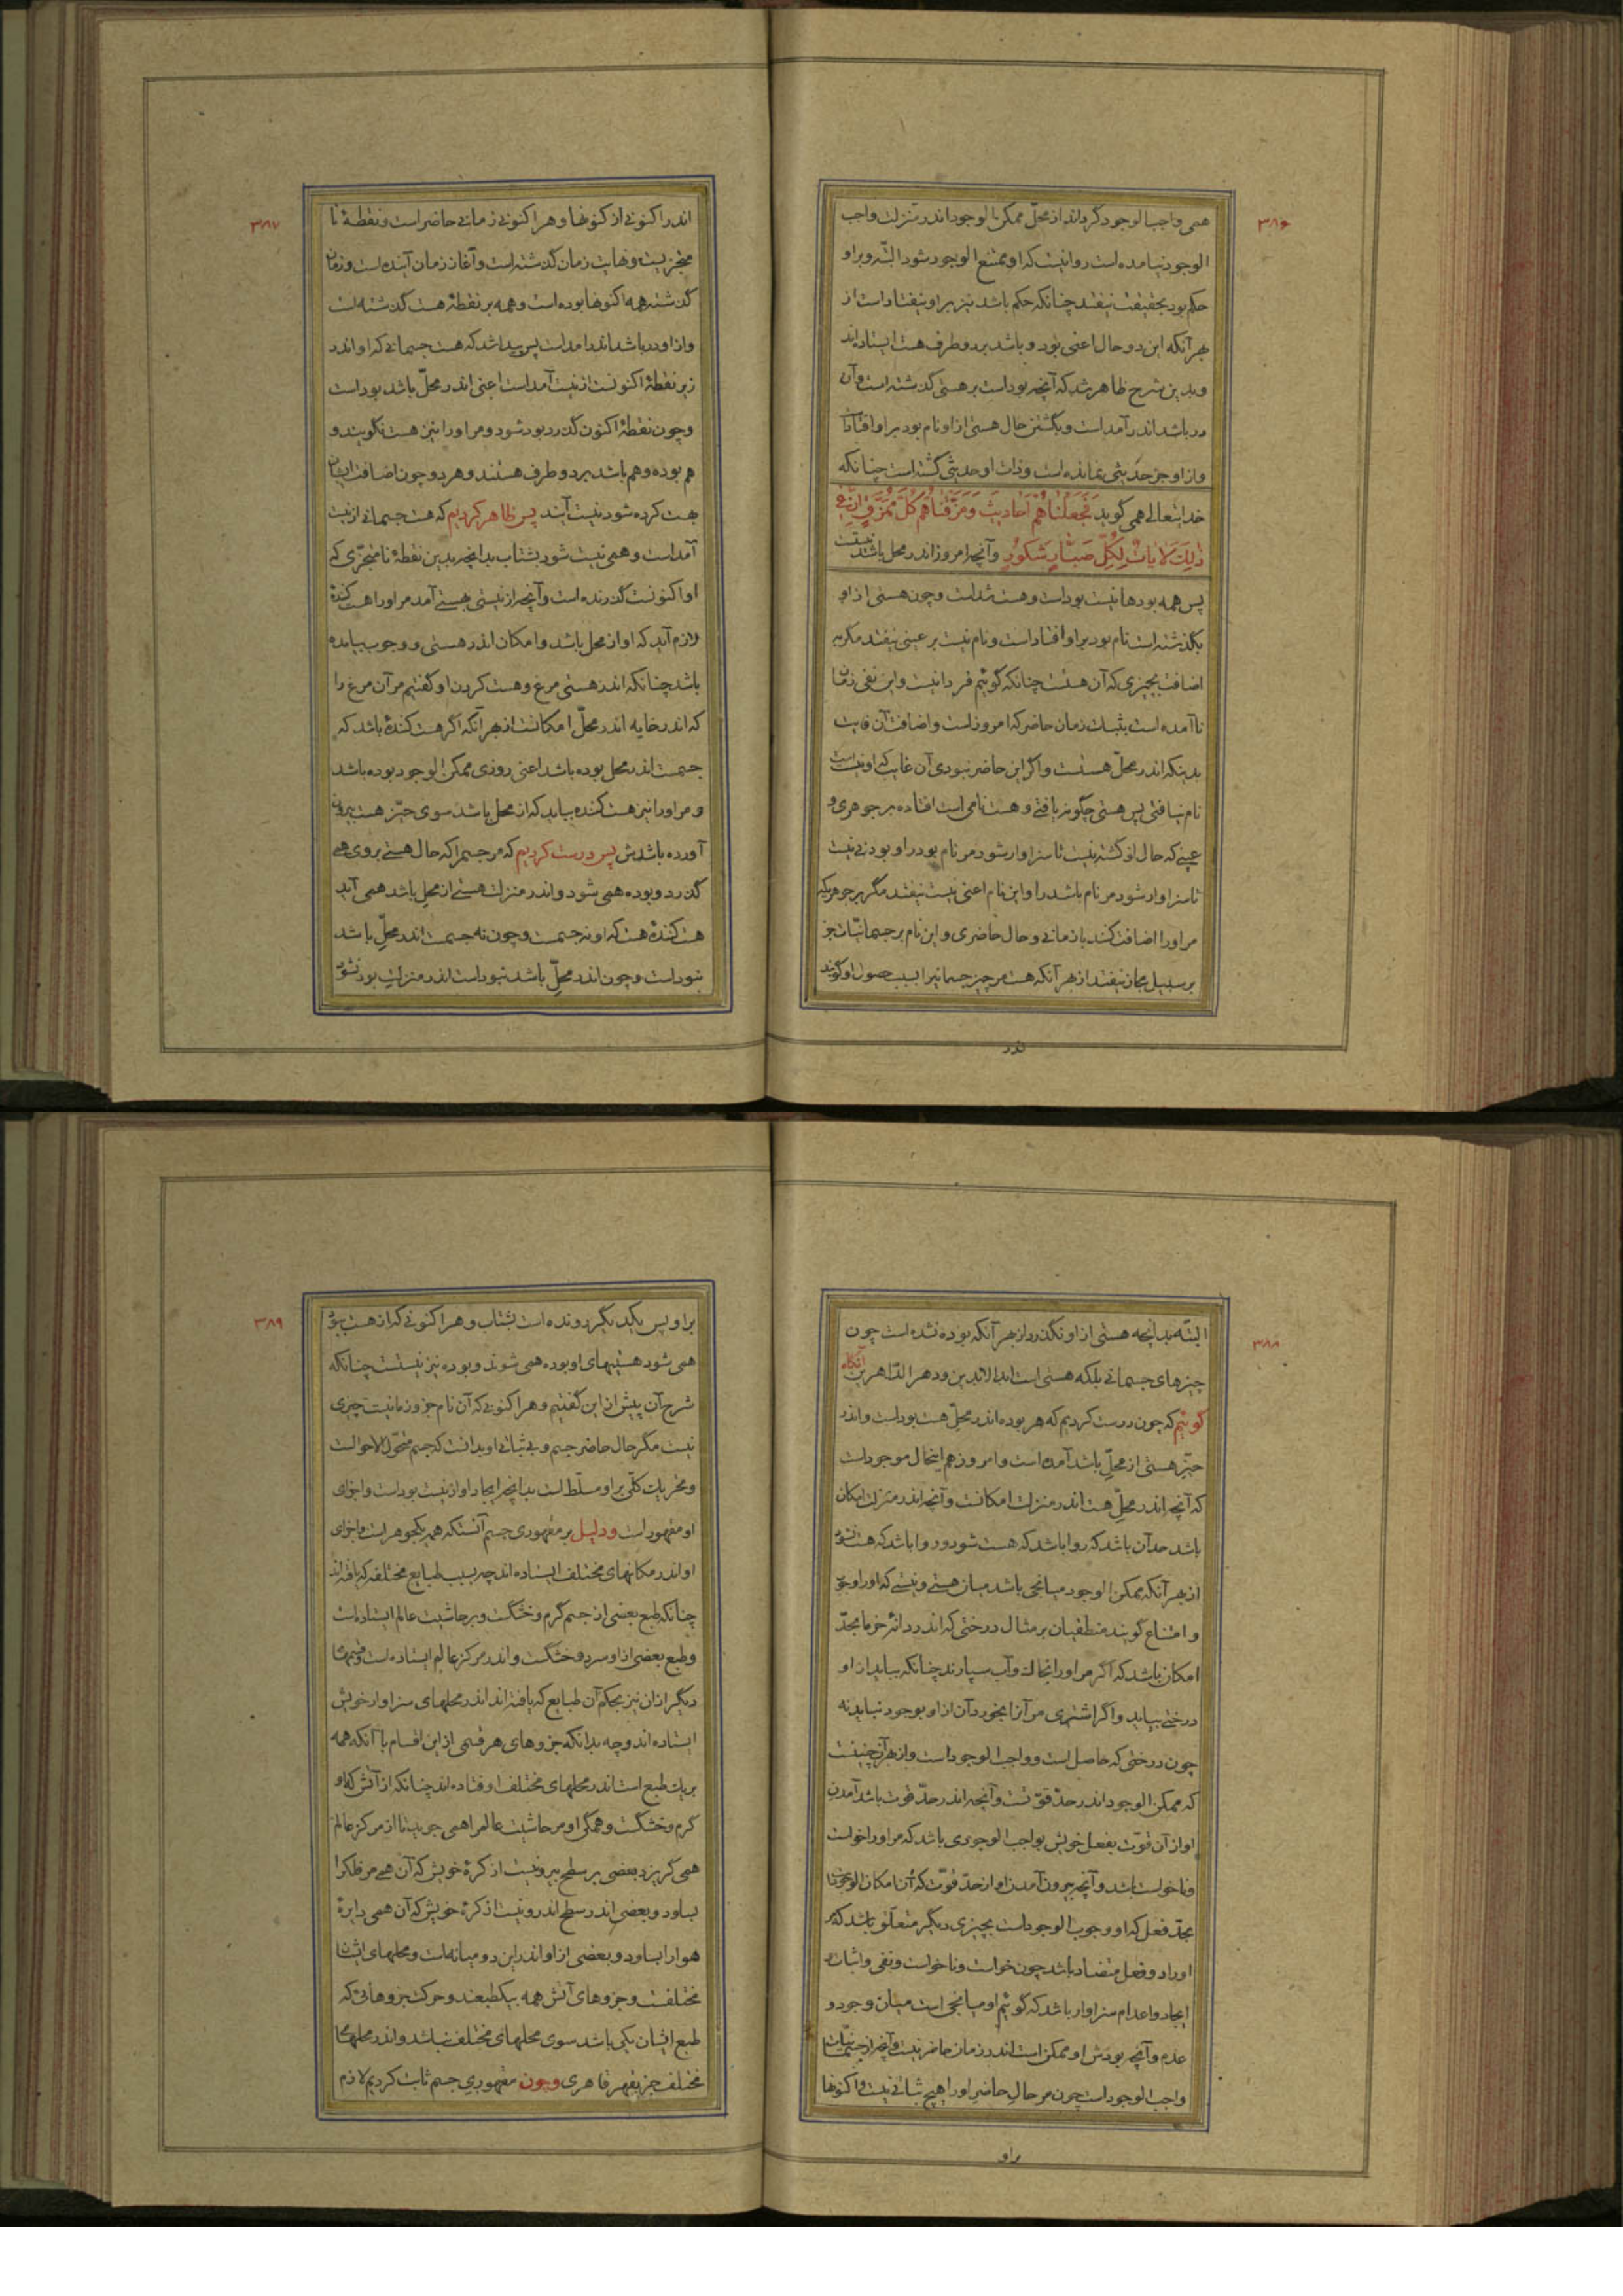 ۳۸۶
همی واجب الوجود گرداند از محلّ ممکن الوجود اندر منزلت واجب
الوجود نیامده است روا نیست که او ممتنع الوجود شود البتّه و بر او
حکم بود بحقیقت نیفتد چنانکه حکم باشد نیز بر او نیفتاد است از
بهر آنکه این دو حال اعنی بود و باشد بر دو طرف هست ایستاده اند
و بدین شرح ظاهر شد که آنچه بود است بر هستی گذشته است و آن
در باشد اندر آمد است و بگشتن حال هستی از او نام بود بر او افتاد است
و از او جز حدیثی نمانده است و ذات او حدیثی گشته است چنانکه
خدایتعالی همی گوید فَجَعَلْنَاهُمْ اَحَادِیثَ وَمَزَّقْنَاهُمْ کُلَّ مُمَزَّقٍ اِنَّ فِی
ذٰلِکَ لَاٰیَاتٍ لِکُلِّ صَبَّارٍ شَکُورٍ و آنچه امروز اندر محل باشد نیست
پس همه بودها نیست بود است و هست شد است و چون هستی از او
بگذشته است نام بود بر او افتاد است و نام نیست بر عینی نیفتد مگر به
اضافت بچیزی که آن هست چنانکه گوئیم فردا نیست و این نفی زمان
ناآمده است بثبات زمان حاضر که امروز است و اضافت آن غایب
بدینکه اندر محلّ هست است و اگر این حاضر نبودی آن غایب که او نیست است
نام نیافتی پس هستی چگونه یافتی و هست نامی است افتاده بر جوهری و
عینی که حال او گشته نیست تا سزاوار شود مر نام بود را و بودنی نیست
تا سزاوار شود مر نام باشد را و این نام اعنی نیست نیفتد مگر بر جوهریکه
مر او را اضافت کنند با زمانی و حال حاضری و این نام بر جسمانیّات جز
بر سبیل مجاز نیفتد از بهر آنکه هست مر چیز جسمانیرا بسبب حصول او گویند
اندر
۳۸۷
اندر اکنونی از کنونها و هر اکنونی زمانی حاضر است و نقطهٔ نا
متجزیست و نهایت زمان گذشته است و آغاز زمان آینده است و زمان
گذشته همه اکنونها بوده است و همه بر نقطهٔ هست گذشته است
و از او در باشد اندر آمد است پس پیدا شد که هست جسمانی که او اندر
زیر نقطهٔ اکنونست از نیست آمد است اعنی اندر محلّ باشد بود است
و چون نقطهٔ اکنون گذرد بود شود و مر او را نیز هست نگویند و
هم بوده و هم باشد بر دو طرف هستند و هر دو چون اضافت ایشان
بهست کرده شود نیست آیند پس ظاهر کردیم که هست جسمانی از نیست
آمد است و همی نیست شود بشتاب بدانچه بدین نقطهٔ نامتجزّی که
او اکنونست گذرنده است و آنچه از نیستی بهستی آمد مر او را هست کنندهٔ
لازم آید که او از محل باشد و امکان اندر هستی و وجوب بیامده
باشد چنانکه اندر هستی مرغ و هست کردن او گفتیم مر آن مرغ را
که اندر خایه اندر محلّ امکانست از بهر آنکه اگر هست کنندهٔ باشد که
جسمست اندر محل بوده باشد اعنی روزی ممکن الوجود بوده باشد
و مر او را نیز هست کننده بباید که از محل باشد سوی حیّز هست بیرون
آورده باشدش پس درست کردیم که مر جسم را که حال هستی بر وی همی
گذرد و بوده همی شود و اندر منزلت هستی از محلِ باشد همی آید
هست کنندهٔ هست که او نه جسمست و چون نه جسمست اندر محلِّ باشد
نبود است و چون اندر محلِّ باشد نبود است اندر منزلتِ بود نشود
۳۸۸
البتّه بدانچه هستی از او نگذرد از بهر آنکه بوده نشده است چون
چیزهای جسمانی بلکه هستی است ابد الابدین و دهر الدّاهرین آنگاه
گوئیم که چون درست کردیم که هر بوده اندر محلّ هست بود است و اندر
حیّز هستی از محلّ باشد آمده است و امروز هم اینحال موجود است
که آنچه اندر محلِّ هست اندر منزلت امکانست و آنچه اندر منزلت امکان
باشد حد آن باشد که روا باشد که هست شود و روا باشد که هست نشود
از بهر آنکه ممکن الوجود میانجی باشد میان هستی و نیستی که او را وجوب
و امتناع گویند منطقیان بر مثال درختی که اندر دانهٔ خرما بحدّ
امکان باشد که اگر مر او را بخاک و آب سپارند چنانکه بباید از او
درختی بیاید و اگر اشتری مر آنرا بخورد آن از او بوجود نیاید نه
چون درختی که حاصل است و واجب الوجود است و از بهر آن چنینست
که ممکن الوجود اندر حدّ قوّتست و آنچه اندر حدّ قوت باشد آمدن
او از آن قوّت بفعل خویش بواجب الوجودی باشد که مر او را خواست
و ناخواست باشد و آنچه بیرون آمدن او از حدّ قوّت که آن امکان الوجود است
بحدّ فعل که او وجوب الوجود است بچیزی دیگر متعلّق باشد که مر
او را دو فعل متضاد باشد چون خواست و ناخواست و نفی و اثبات و
ایجاد و اعدام سزاوار باشد که گوئیم او میانجی است میان وجود و
عدم و آنچه بودش او ممکن است اندر زمان حاضر نیست و آنچه از جسمانیّات
واجب الوجود است چون مر حال حاضر او را هیچ ثباتی نیست و اکنونها
براو
۳۸۹
بر او پس یکدیگر رونده است بشتاب و هر اکنونی که از هست بود
همی شود هستیهای او بوده همی شوند و بوده نیز نیستست چنانکه
شرح آن پیش از این گفتیم و هر اکنونی که آن نام جزو زمانیست چیزی
نیست مگر حال حاضر جسم و بی ثباتی او بدانست که جسم متحوّل الاحوالست
و تحریک کلّی بر او مسلّط است بدانچه ایجاد او از نیست بود است و اجزای
او مقهور است و دلیل بر مقهوری جسم آنستکه همه یکجوهر است و اجزای
او اندر مکانهای مختلف ایستاده اند چه بسبب طبایع مختلفه که یافته اند
چنانکه طبع بعضی از جسم گرم و خشگست و بر حاشیت عالم ایستاده است
و طبع بعضی از او سرد و خشگست و اندر مرکز عالم ایستاده است و قسمهای
دیگر از آن نیز بحکم آن طبایع که یافته اند اندر محلهای سزاوار خویش
ایستاده اند و چه بدانکه جزوهای هر قسمی از این اقسام با آنکه همه
بر یک طبع است اندر محلهای مختلف اوفتاده اند چنانکه از آتش که او
گرم و خشگست و همگی او مر حاشیت عالم را همی جوید تا از مرکز عالم
همی گریزد بعضی بر سطح بیرونیست از کرهٔ خویش که آن همی مر فلک را
بساود و بعضی اندر سطح اندرونیست از کرهٔ خویش که آن همی دایرهٔ
هوا را بساود و بعضی از او اندر این دو میانه است و محلهای ایشان
مختلفست و جزوهای آتش همه بیکطبعند و حرکت جزوهائی که
طبع ایشان یکی باشد سوی محلهای مختلف نباشد و اندر محلهای
مختلف جز بقهر قاهری و چون مقهوری جسم ثابت کردیم لازم